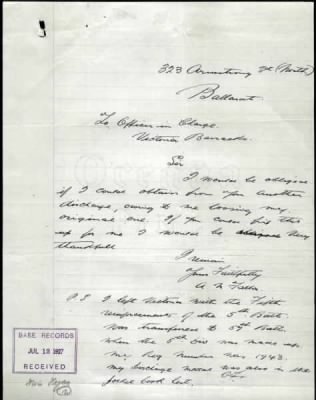 323 Armstrong St (North)
Ballarat
To Officer in Charge.
Victoria Barracks.
Sir
I would be obliged
if I could obtain from you another
discharge, owing to me loosing my
original one. If you could fix this
up for me I would be very
thankfull
I remain
Yours Faithfully
A
P.S. I left Victoria with the Fifth
reinforcements of the 5th Battn.
was transferred to 57 Battn.
when the 5th Div was made up.
my Reg number was 1943.
my discharge was also in the
pocket book lost.
BASE RECORDS
JUL 12 1927
RECEIVED